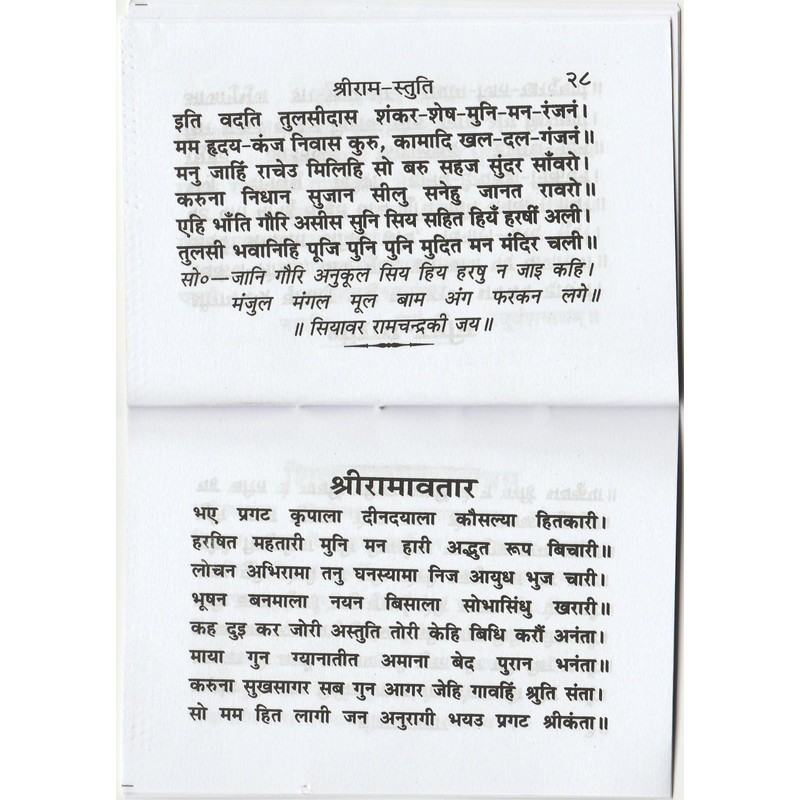 श्रीराम-स्तुति २८
इति वदति तुलसीदास शंकर-शेष-मुनि-मन-रंजनं।
मम हृदय-कंज निवास कुरु, कामादि खल-दल-गंजनं॥
मनु जाहिं राचेउ मिलिहि सो बरु सहज सुंदर साँवरो।
करुना निधान सुजान सीलु सनेहु जानत रावरो॥
एहि भाँति गौरि असीस सुनि सिय सहित हियँ हरषीं अली।
तुलसी भवानिहि पूजि पुनि पुनि मुदित मन मंदिर चली॥
सो०—जानि गौरि अनुकूल सिय हिय हरषु न जाइ कहि।
मंजुल मंगल मूल बाम अंग फरकन लगे॥
॥ सियावर रामचन्द्रकी जय॥
श्रीरामावतार
भए प्रगट कृपाला दीनदयाला कौसल्या हितकारी।
हरषित महतारी मुनि मन हारी अद्भुत रूप बिचारी॥
लोचन अभिरामा तनु घनस्यामा निज आयुध भुज चारी।
भूषन बनमाला नयन बिसाला सोभासिंधु खरारी॥
कह दुइ कर जोरी अस्तुति तोरी केहि बिधि करौं अनंता।
माया गुन ग्यानातीत अमाना बेद पुरान भनंता॥
करुना सुखसागर सब गुन आगर जेहि गावहिं श्रुति संता।
सो मम हित लागी जन अनुरागी भयउ प्रगट श्रीकंता॥